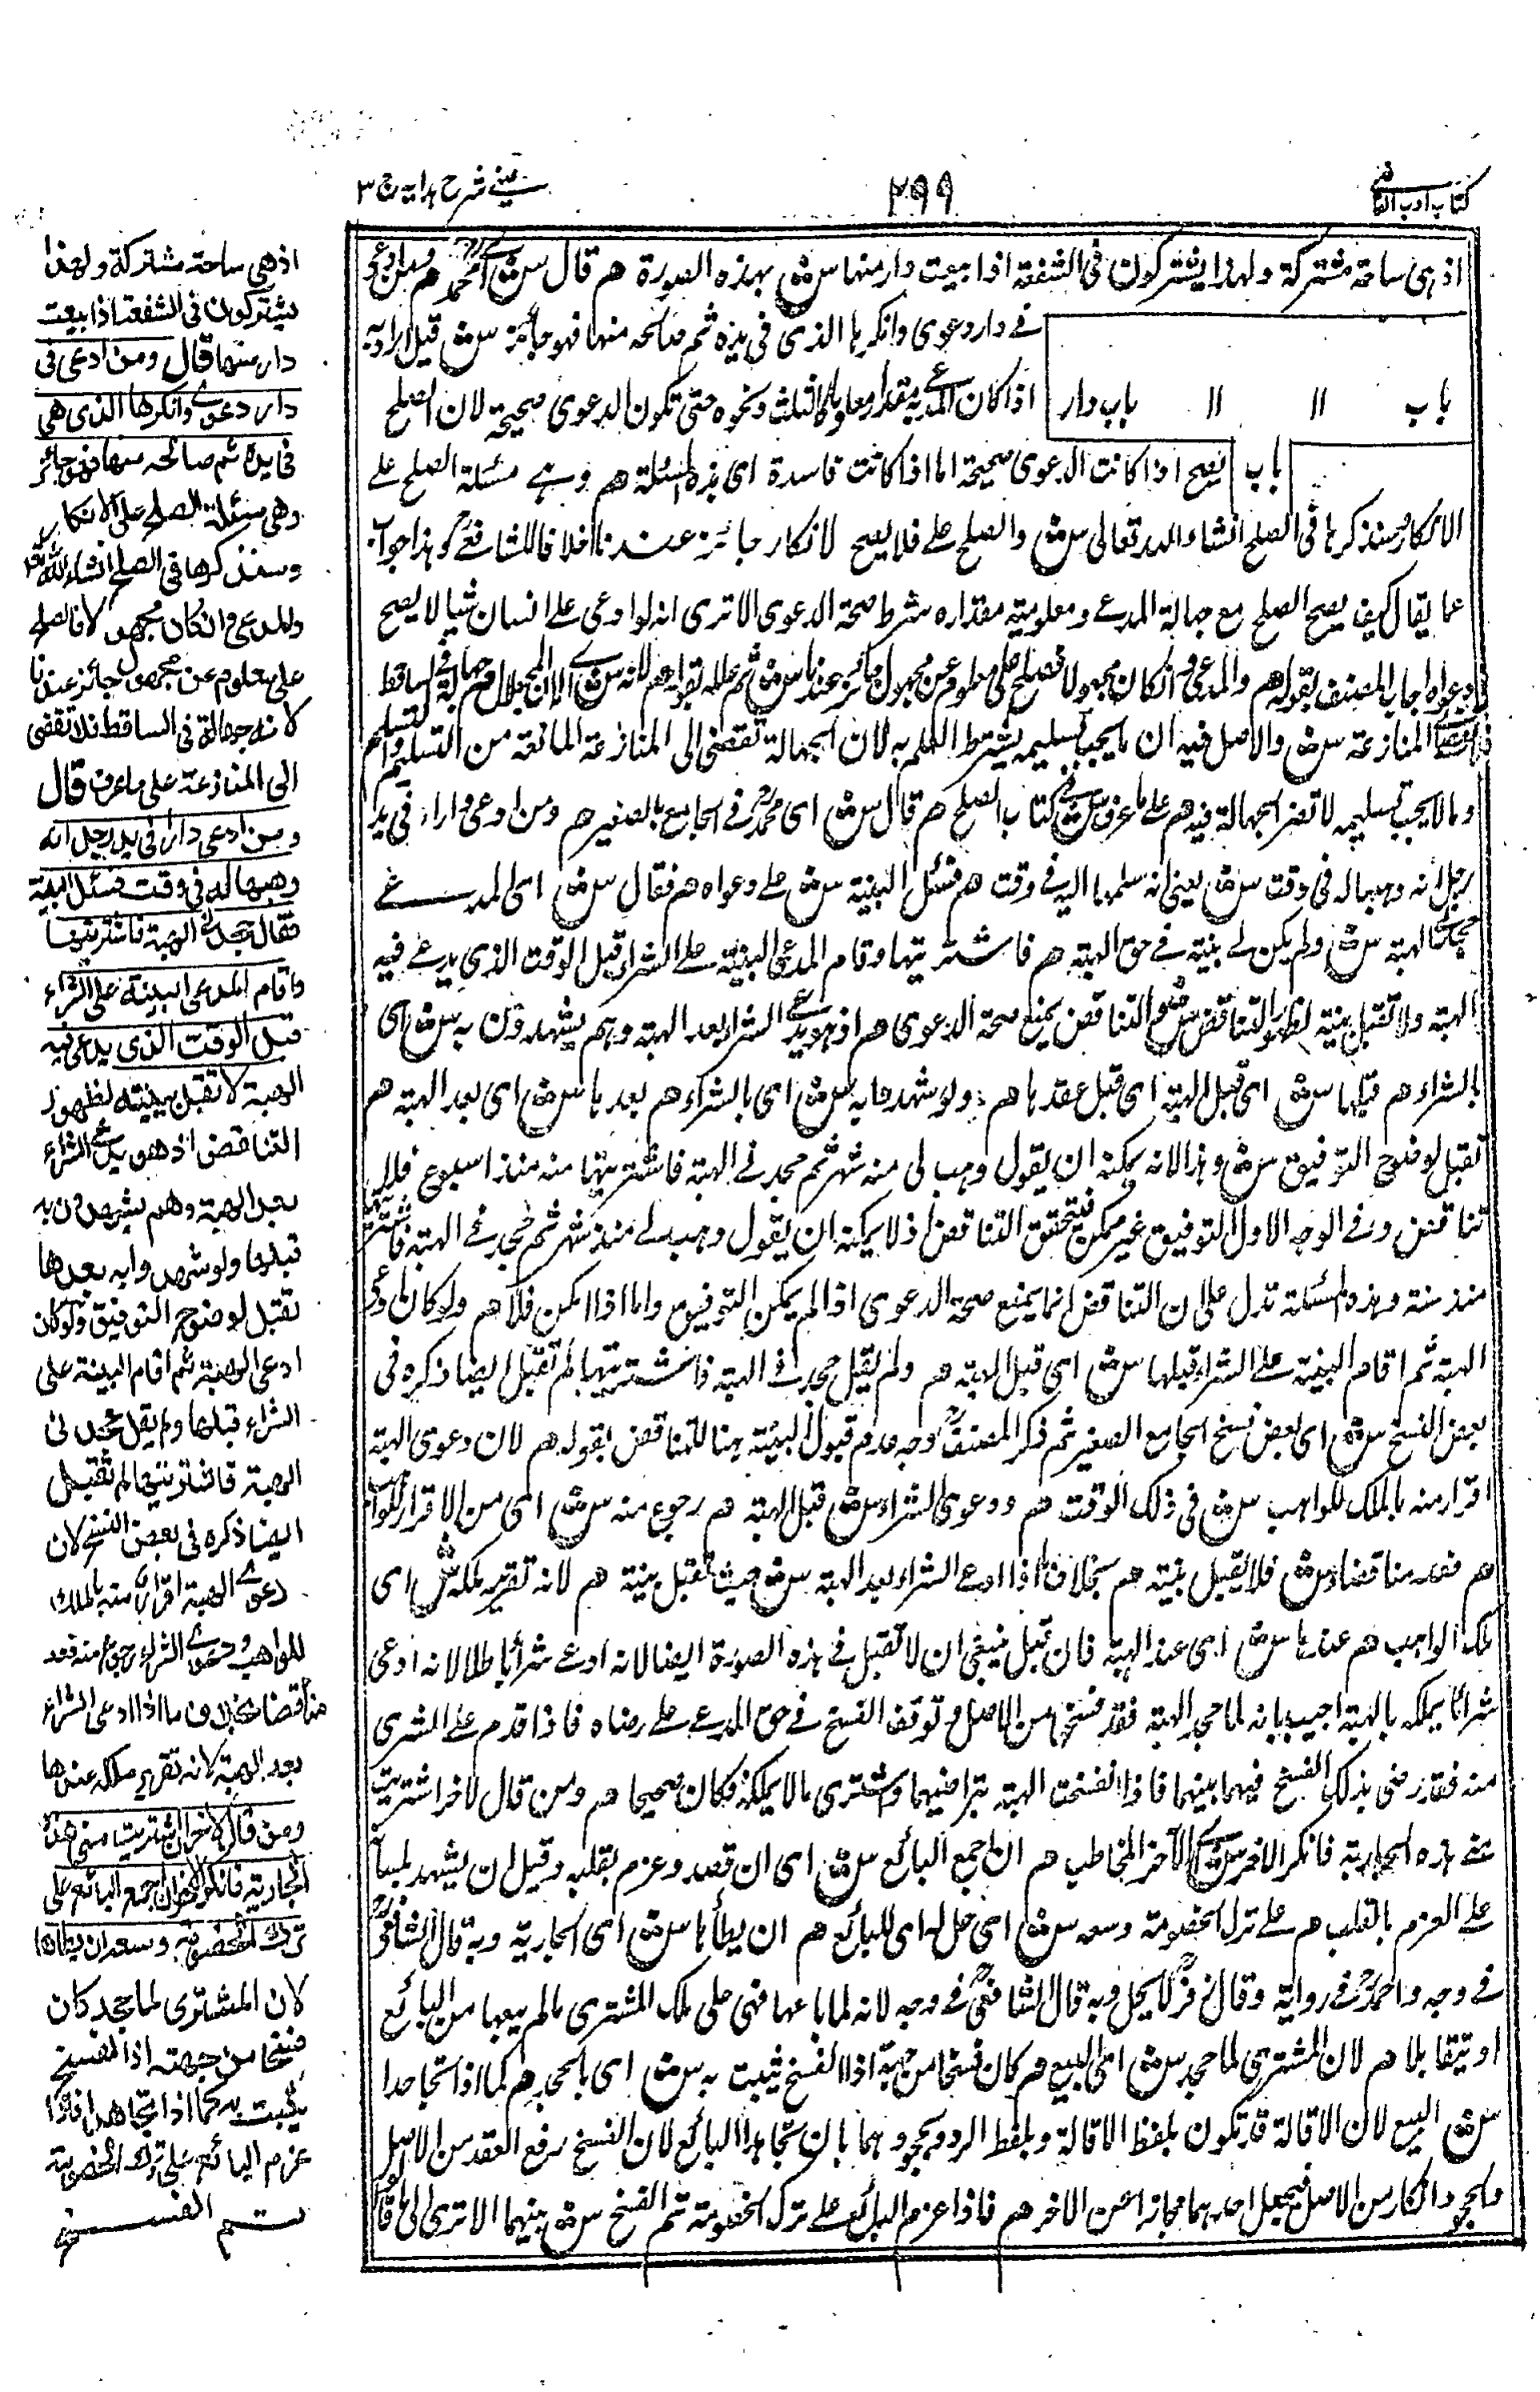 كتاب ادب القاضى
٢٩٩
عينى شرح هدايه ج ٣
اذ هى ساحة مشتركة ولهذا يشتركون فى الشفعة اذا بيعت دار منها ش بهذه الصورة هم قال ش اى محمد هم ومن ادعى
فى دار دعوى وانكرها الذى فى يده ثم صالحه منها فهو جائز ش قيل اراد به
باب // // باب دار
اذا كان المدعى به مقدارا معلوما كالثلث ونحوه حتى تكون الدعوى صحيحة لان الصلح
باب
يصح اذا كانت الدعوى صحيحة اما اذا كانت فاسدة اى هذه المسئلة هم وهى مسئلة الصلح على
الانكار وسنذكرها فى الصلح انشاء الله تعالى ش والصلح على الانكار جائز عندنا خلافا للشافعى وهذا جواب
عما يقال كيف يصح الصلح مع جهالة المدعى ومعلومية مقداره شرط صحة الدعوى الا ترى انه لو ادعى على انسان شيئا لا يصح
دعواه اجاب المصنف بقوله هم والمدعى وان كان مجهولا فالصلح على معلوم عن مجهول جائز عندنا ش ثم علله بقوله هم لانه جهالة فى الساقط
المنازعة ش والاصل فيه ان ما يجب تسليمه يشترط العلم به لان الجهالة تفضى الى المنازعة المانعة من التسليم والتسلم
وما لا يجب تسليمه لا تضر الجهالة فيه هم على ما عرف ش فى كتاب الصلح هم قال ش اى محمد فى الجامع الصغير هم ومن ادعى دارا فى يد
رجل انه وهبها له فى وقت ش يعنى انه سلمها اليه فى وقت هم فسئل البينة ش على دعواه هم فقال ش اى المدعى
جحدنى الهبة ش ولم يكن لى بينة فى حق الهبة هم فاشتريتها واقام المدعى البينة على الشراء قبل الوقت الذى يدعى فيه
الهبة ولا تقبل بينته لظهور التناقض ش والتناقض يمنع صحة الدعوى هم اذ هو يدعى الشراء بعد الهبة وهم يشهدون به ش اى
بالشراء هم قبلها ش اى قبل الهبة اى قبل عقدها هم ولو شهدوا به ش اى بالشراء هم بعدها ش اى بعد الهبة هم
تقبل لوضوح التوفيق ش وهذا لانه يمكنه ان يقول وهب لى منذ شهر ثم جحدنى الهبة فاشتريتها منه منذ اسبوع فلا
تناقض وفى الوجه الاول التوفيق غير ممكن فيتحقق التناقض اذ لا يمكنه ان يقول وهب لى منذ شهر ثم جحدنى الهبة فاشتريتها
منذ سنة وهذه المسئلة تدل على ان التناقض انما يمنع صحة الدعوى اذا لم يمكن التوفيق واما اذا امكن فلا هم ولو كان ادعى
الهبة ثم اقام البينة على الشراء قبلها ش اى قبل الهبة هم ولم يقل جحدنى الهبة فاشتريتها لم تقبل ايضا ذكره فى
بعض النسخ ش اى بعض نسخ الجامع الصغير ثم ذكر المصنف وجه عدم قبول البينة هنا للتناقض بقوله هم لان دعوى الهبة
اقرار منه بالملك للواهب ش فى ذلك الوقت هم ودعوى الشراء ش قبل الهبة هم رجوع منه ش اى من الاقرار للواهب
هم فعد مناقضا ش فلا يقبل بينته هم بخلاف ما اذا ادعى الشراء بعد الهبة ش حيث تقبل بينته هم لانه تقرير ملكه ش اى
ملك الواهب هم عندها ش اى عند الهبة فان قيل ينبغى ان لا تقبل فى هذه الصورة ايضا لانه ادعى شراء باطلا لانه ادعى
شراء ما يملكه بالهبة اجيب بانه لما جحد الهبة فقد فسخها من الاصل وتوقف الفسخ فى حق المدعى على رضاه فاذا قدم على الشرى
منه فقد رضى بذلك الفسخ فيما بينهما فاذا انفسخت الهبة بتراضيهما واشترى مالا يملكه فكان صحيحا هم ومن قال لاخر اشتريت
منى هذه الجارية فانكر الاخر ش اى الآخر المخاطب هم ان اجمع البائع ش اى ان قصد وعزم بقلبه وقيل ان يشهد بلسانه
على العزم بالقلب هم على ترك الخصومة وسعه ش اى حل له اى للبائع هم ان يطأها ش اى الجارية وبه قال الشافعى
فى وجه واحمد فى رواية وقال زفر لا يحل وبه قال الشافعى فى وجه لانه لما باعها فهى على ملك المشترى مالم يبعها من البائع
او يتقايلا هم لان المشترى لما جحد ش اى البيع هم كان فسخا من جهته اذ الفسخ يثبت به ش اى بالجحد هم كما اذا تجاحدا
ش البيع لان الاقالة قد تكون بلفظ الاقالة وبلفظ الرد وبجحودهما بان تجاحدا البائع لان الفسخ رفع العقد من الاصل
والجحود انكار من الاصل فيجعل احدهما مجازا عن الاخر هم فاذا عزم البائع على ترك الخصومة تم الفسخ ش بينهما الا ترى الى
اذ هى ساحة مشتركة ولهذا
يشتركون فى الشفعة اذا بيعت
دار منها قال ومن ادعى فى
دار دعوى وانكرها الذى هى
فى يده ثم صالحه منها فهو جائز
وهى مسئلة الصلح على الانكار
وسنذكرها فى الصلح انشاء الله تعالى
والمدعى وان كان مجهولا فالصلح
على معلوم عن مجهول جائز عندنا
لانه جهالة فى الساقط فلا تفضى
الى المنازعة على ما عرف قال
ومن ادعى دارا فى يد رجل انه
وهبها له فى وقت فسئل البينة
فقال جحدنى الهبة فاشتريتها
واقام المدعى البينة على الشراء
قبل الوقت الذى يدعى فيه
الهبة لا تقبل بينته لظهور
التناقض اذ هو يدعى الشراء
بعد الهبة وهم يشهدون به
قبلها ولو شهدوا به بعدها
تقبل لوضوح التوفيق ولو كان
ادعى الهبة ثم اقام البينة على
الشراء قبلها ولم يقل جحدنى
الهبة فاشتريتها لم تقبل
ايضا ذكره فى بعض النسخ لان
دعوى الهبة اقرار منه بالملك
للواهب ودعوى الشراء رجوع منه فعد
مناقضا بخلاف ما اذا ادعى الشراء
بعد الهبة لانه تقرير ملكه عندها
ومن قال لاخر اشتريت منى هذه
الجارية فانكر الاخر ان اجمع البائع على
ترك الخصومة وسعه ان يطأها
لان المشترى لما جحد كان
فسخا من جهته اذ الفسخ
يثبت به كما اذا تجاحدا فاذا
عزم البائع على ترك الخصومة
تم الفسخ